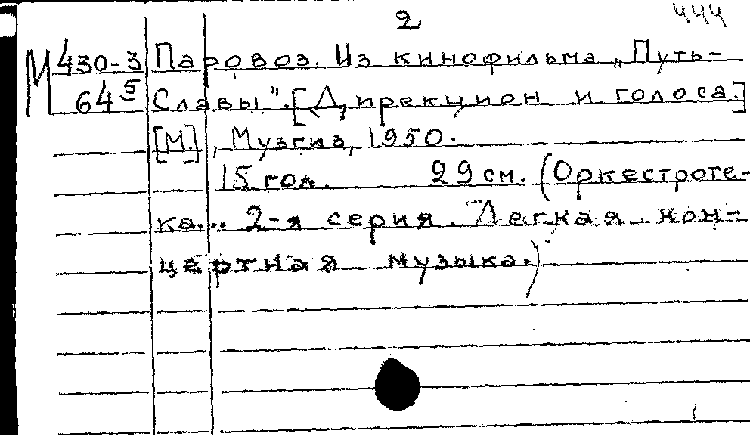 2 444
М 430-3 Паровоз. Из кинофильма „Путь-
64⁵ Славы". [Дирекцион и голоса.]
[М.], Музгиз, 1950.
15 гол. 29 см. (Оркестроте-
ка... 2-я серия. Легкая кон-
цертная музыка.)